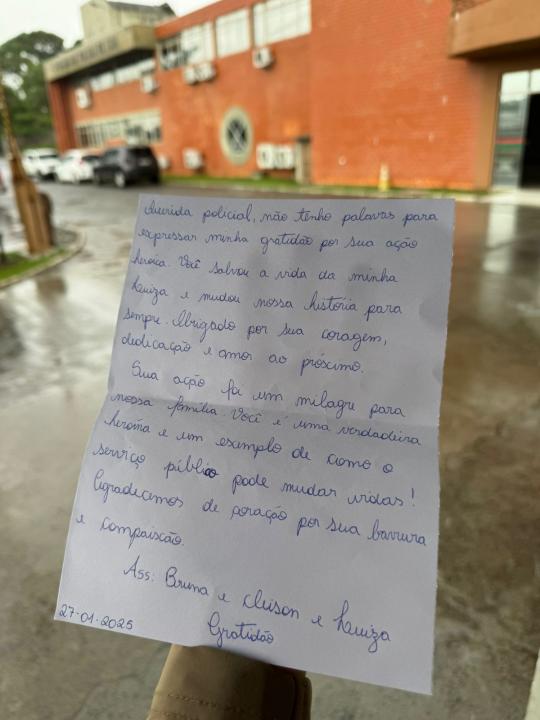 Querida policial, não tenho palavas para
expressar minha gratidão por sua ação
heroica. Você salvou a vida da minha
Luiza e mudou nossa história para
sempre. Obrigado por sua coragem,
dedicação e amor ao próximo.
Sua ação foi um milagre para
nossa família. Você é uma verdadeira
heroína e um exemplo de como o
serviço público pode mudar vidas!
Agradecemos de coração por sua bravura
e compaixão.
Ass: Bruna e Cleison e Luiza
27-01-2025
Gratidão